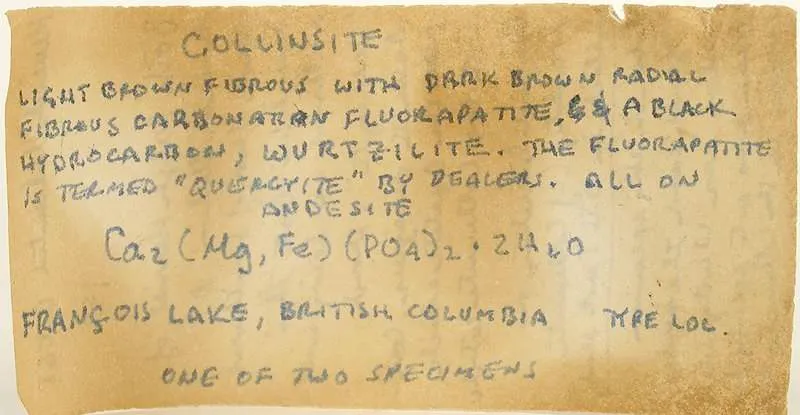 COLLINSITE
LIGHT BROWN FIBROUS WITH DARK BROWN RADIAL
FIBROUS CARBONATAN FLUORAPATITE, & A BLACK
HYDROCARBON, WURTZILITE. THE FLUORAPATITE
IS TERMED "QUERCYITE" BY DEALERS. ALL ON
ANDESITE
Ca₂(Mg,Fe)(PO₄)₂·2H₂O
FRANÇOIS LAKE, BRITISH COLUMBIA TYPE LOC.
ONE OF TWO SPECIMENS